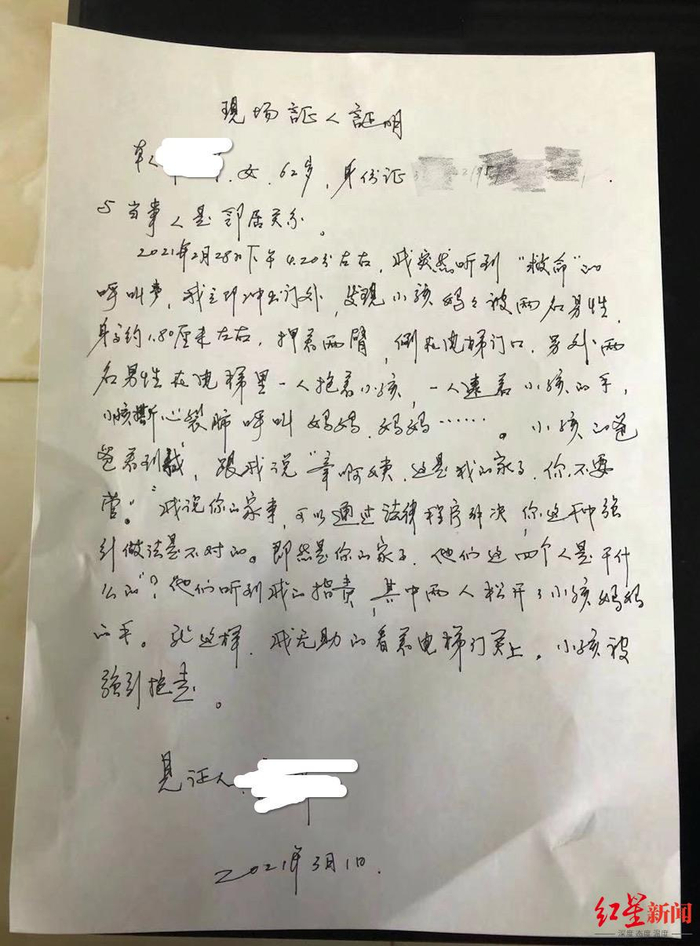 現场証人証明
本人 ，女，62岁，身份证
与当事人是邻居关系。
2021年2月28日下午4.20分左右，我突然听到“救命”的
呼叫声，我立即冲出门外，发现小孩妈妈被两名男性，
身高约1.80厘米左右，押着两臂，倒在电梯门口，另外两
名男性在电梯里一人抱着小孩，一人逮着小孩的手，
小孩撕心裂肺呼叫 妈妈，妈妈……。小孩的爸
爸看到我，跟我说“章啊姨，这是我的家事，你不要
管。”我说你的家事，可以通过法律程序解决，你这种强
引做法是不对的。既然是你的家事，他们这四个人是干什
么的”？他们听到我的指责，其中两人松开了小孩妈妈
的手。就这样，我无助的看着电梯门关上。小孩被
强引抱走。
見证人：
2021年3月1日.
红星新闻
深度 态度 温度